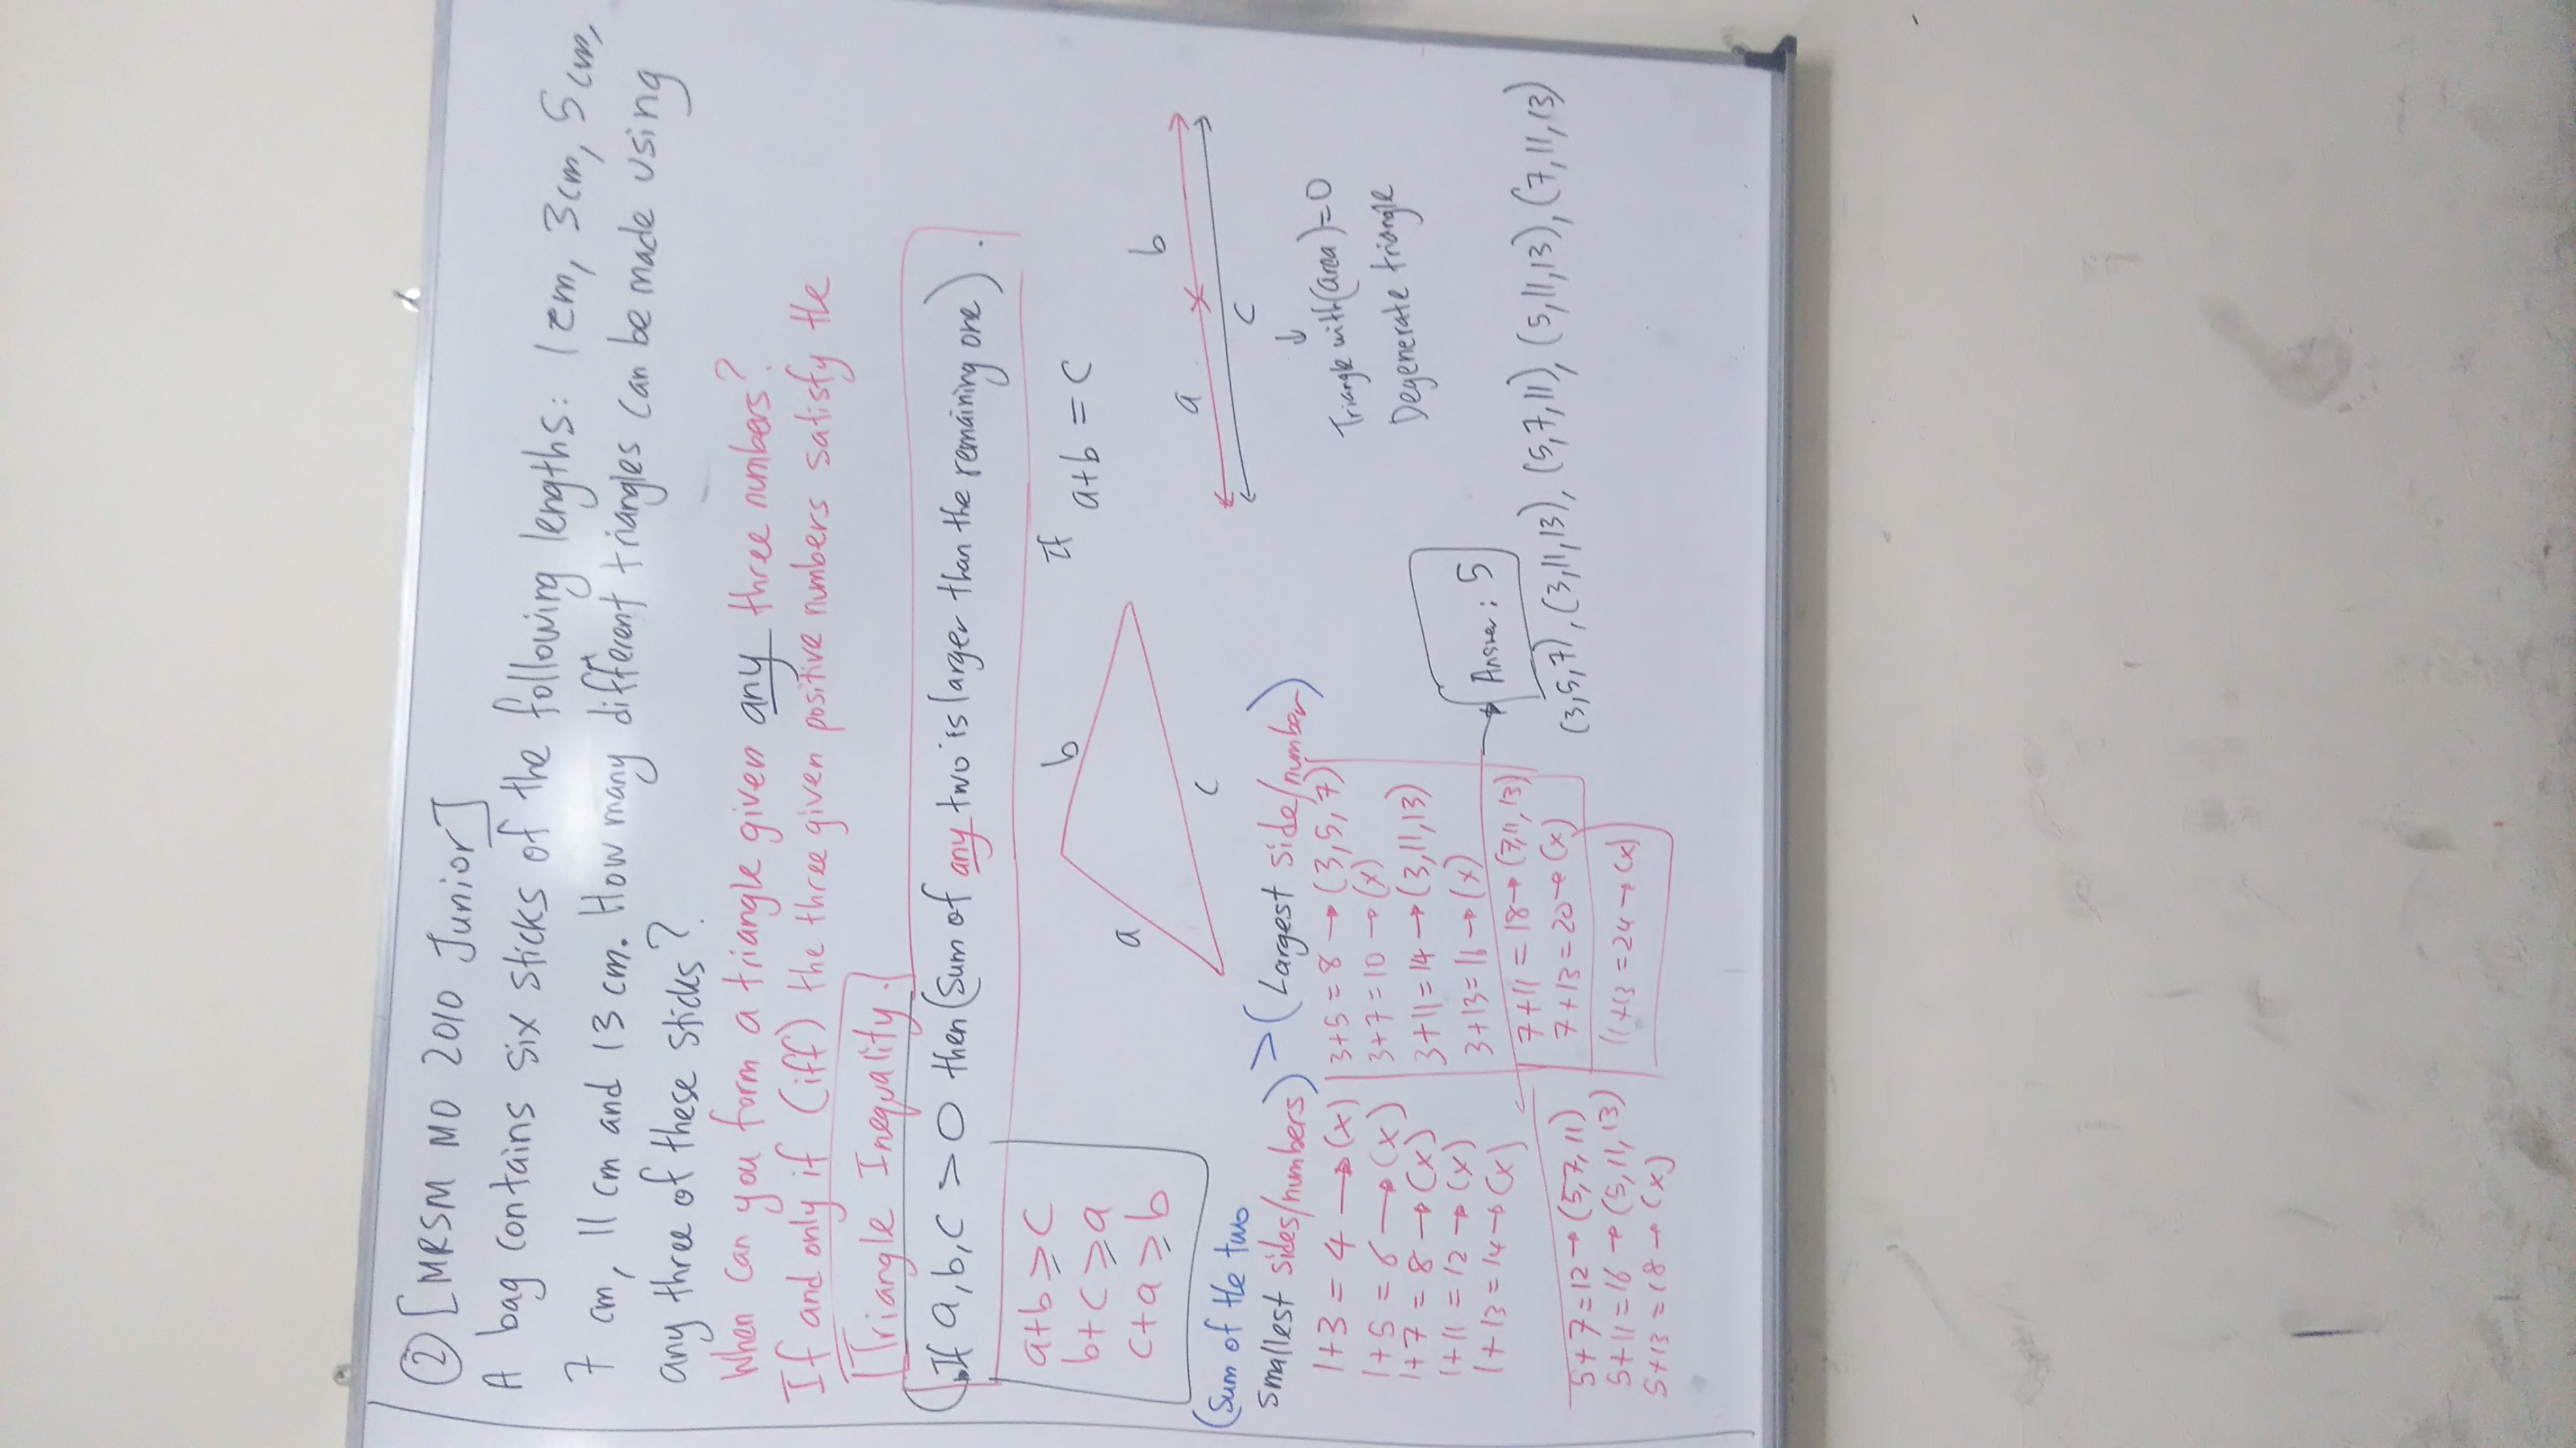 ② [MRSM MO 2010 Junior]
A bag contains six sticks of the following lengths: 1cm, 3cm, 5cm,
7 cm, 11 cm and 13 cm. How many different triangles can be made using
any three of these sticks?
When can you form a triangle given any three numbers?
If and only if (iff) the three given positive numbers satisfy the
[Triangle Inequality.]
(If a,b,c > 0 then (Sum of any two is larger than the remaining one).
a+b ≥ c
b+c ≥ a
c+a ≥ b
a
b
c
If
a+b = c
a
b
c
↓
Triangle with (area)=0
Degenerate triangle
(Sum of the two
smallest sides/numbers) > (Largest side/number)
1+3 = 4 → (x)
1+5 = 6 → (x)
1+7 = 8 → (x)
1+11 = 12 → (x)
1+13 = 14 → (x)
3+5 = 8 → (3,5,7)
3+7 = 10 → (x)
3+11 = 14 → (3,11,13)
3+13 = 16 → (x)
5+7 = 12 → (5,7,11)
5+11 = 16 → (5,11,13)
5+13 = 18 → (x)
7+11 = 18 → (7,11,13)
7+13 = 20 → (x)
11+13 = 24 → (x)
→ Answer: 5
(3,5,7), (3,11,13), (5,7,11), (5,11,13), (7,11,13)